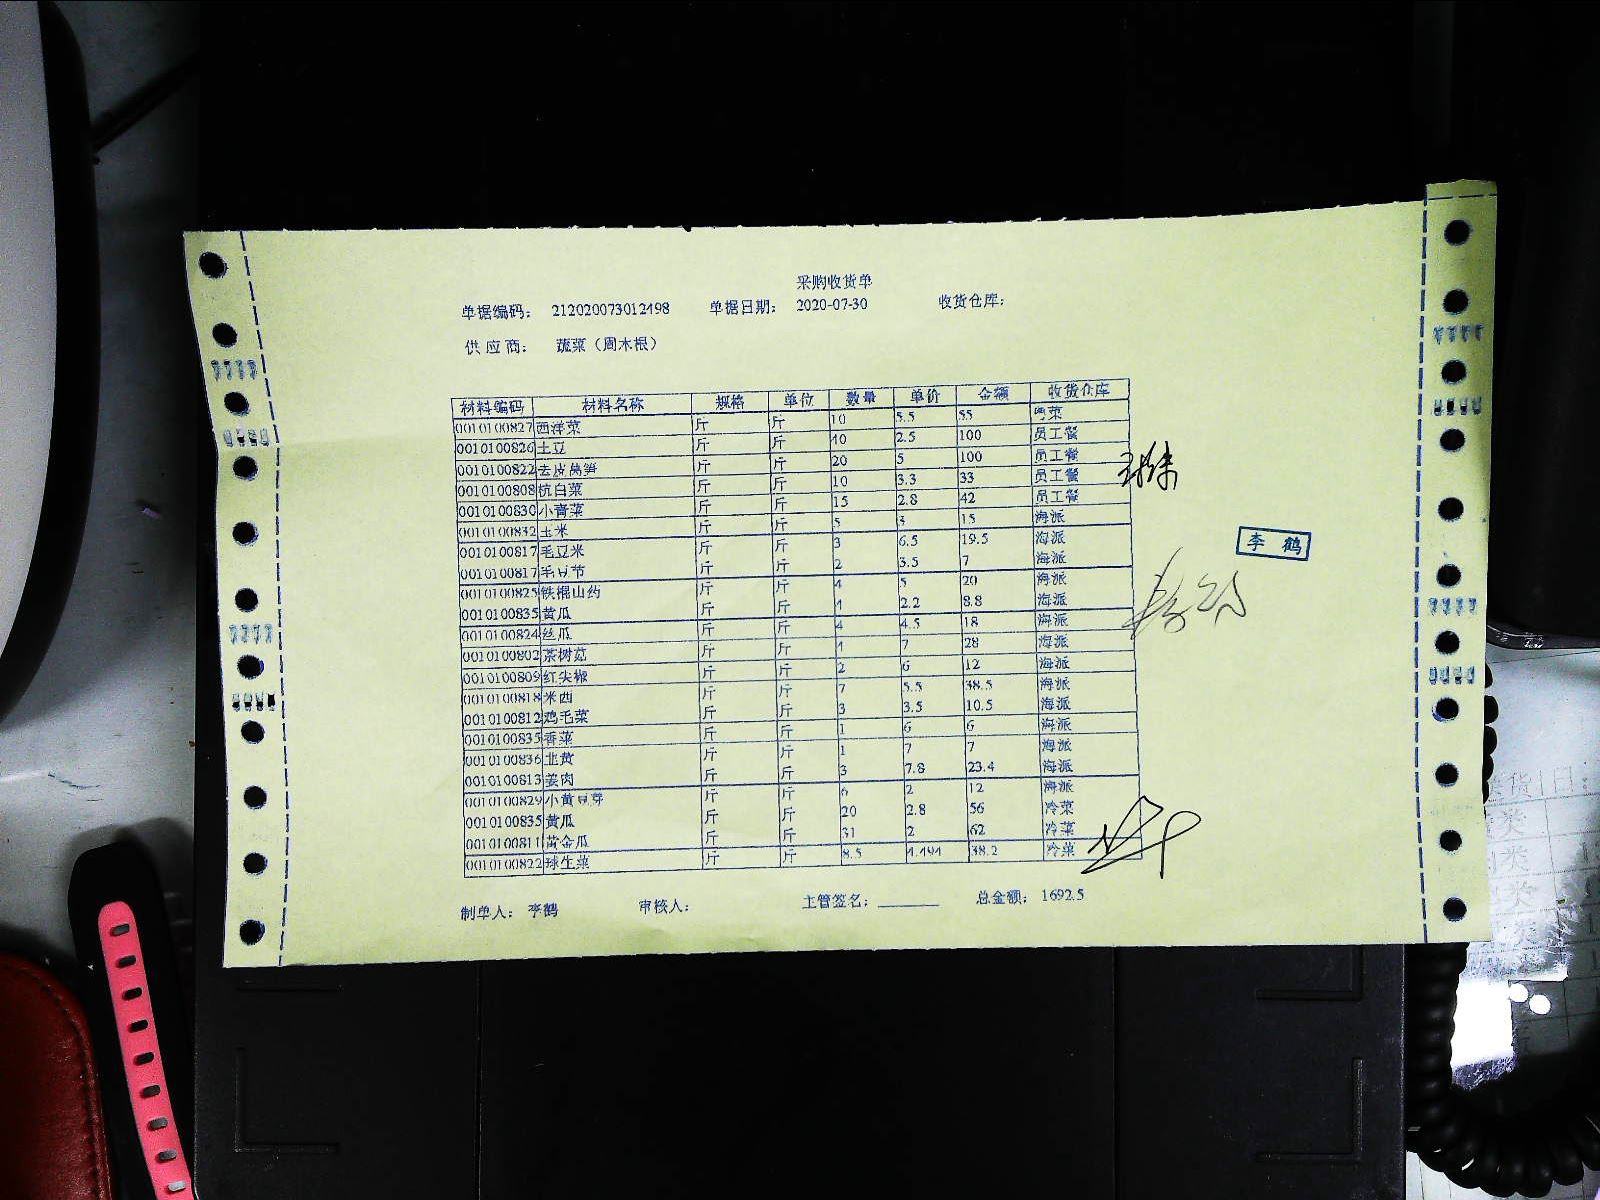 采购收货单
单据编码: 212020073012498 单据日期: 2020-07-30 收货仓库:
供应商: 蔬菜(周木根)
材料编码 材料名称 规格 单位 数量 单价 金额 收货仓库
0010100827 西洋菜 斤 斤 10 5.5 55 粤菜
0010100826 土豆 斤 斤 40 2.5 100 员工餐
0010100822 去皮莴笋 斤 斤 20 5 100 员工餐
0010100808 杭白菜 斤 斤 10 3.3 33 员工餐
0010100830 小青菜 斤 斤 15 2.8 42 员工餐
0010100832 玉米 斤 斤 5 3 15 海派
0010100817 毛豆米 斤 斤 3 6.5 19.5 海派
0010100817 毛豆节 斤 斤 2 3.5 7 海派
0010100825 铁棍山药 斤 斤 4 5 20 海派
0010100835 黄瓜 斤 斤 4 2.2 8.8 海派
0010100824 丝瓜 斤 斤 4 4.5 18 海派
0010100802 茶树菇 斤 斤 4 7 28 海派
0010100809 红尖椒 斤 斤 2 6 12 海派
0010100818 米西 斤 斤 7 5.5 38.5 海派
0010100812 鸡毛菜 斤 斤 3 3.5 10.5 海派
0010100835 香菜 斤 斤 1 6 6 海派
0010100836 韭黄 斤 斤 1 7 7 海派
0010100813 姜肉 斤 斤 3 7.8 23.4 海派
0010100829 小黄豆芽 斤 斤 6 2 12 海派
0010100835 黄瓜 斤 斤 20 2.8 56 冷菜
0010100811 黄金瓜 斤 斤 31 2 62 冷菜
0010100822 球生菜 斤 斤 8.5 4.494 38.2 冷菜
李鹤
制单人: 李鹤 审核人: 主管签名: 总金额: 1692.5